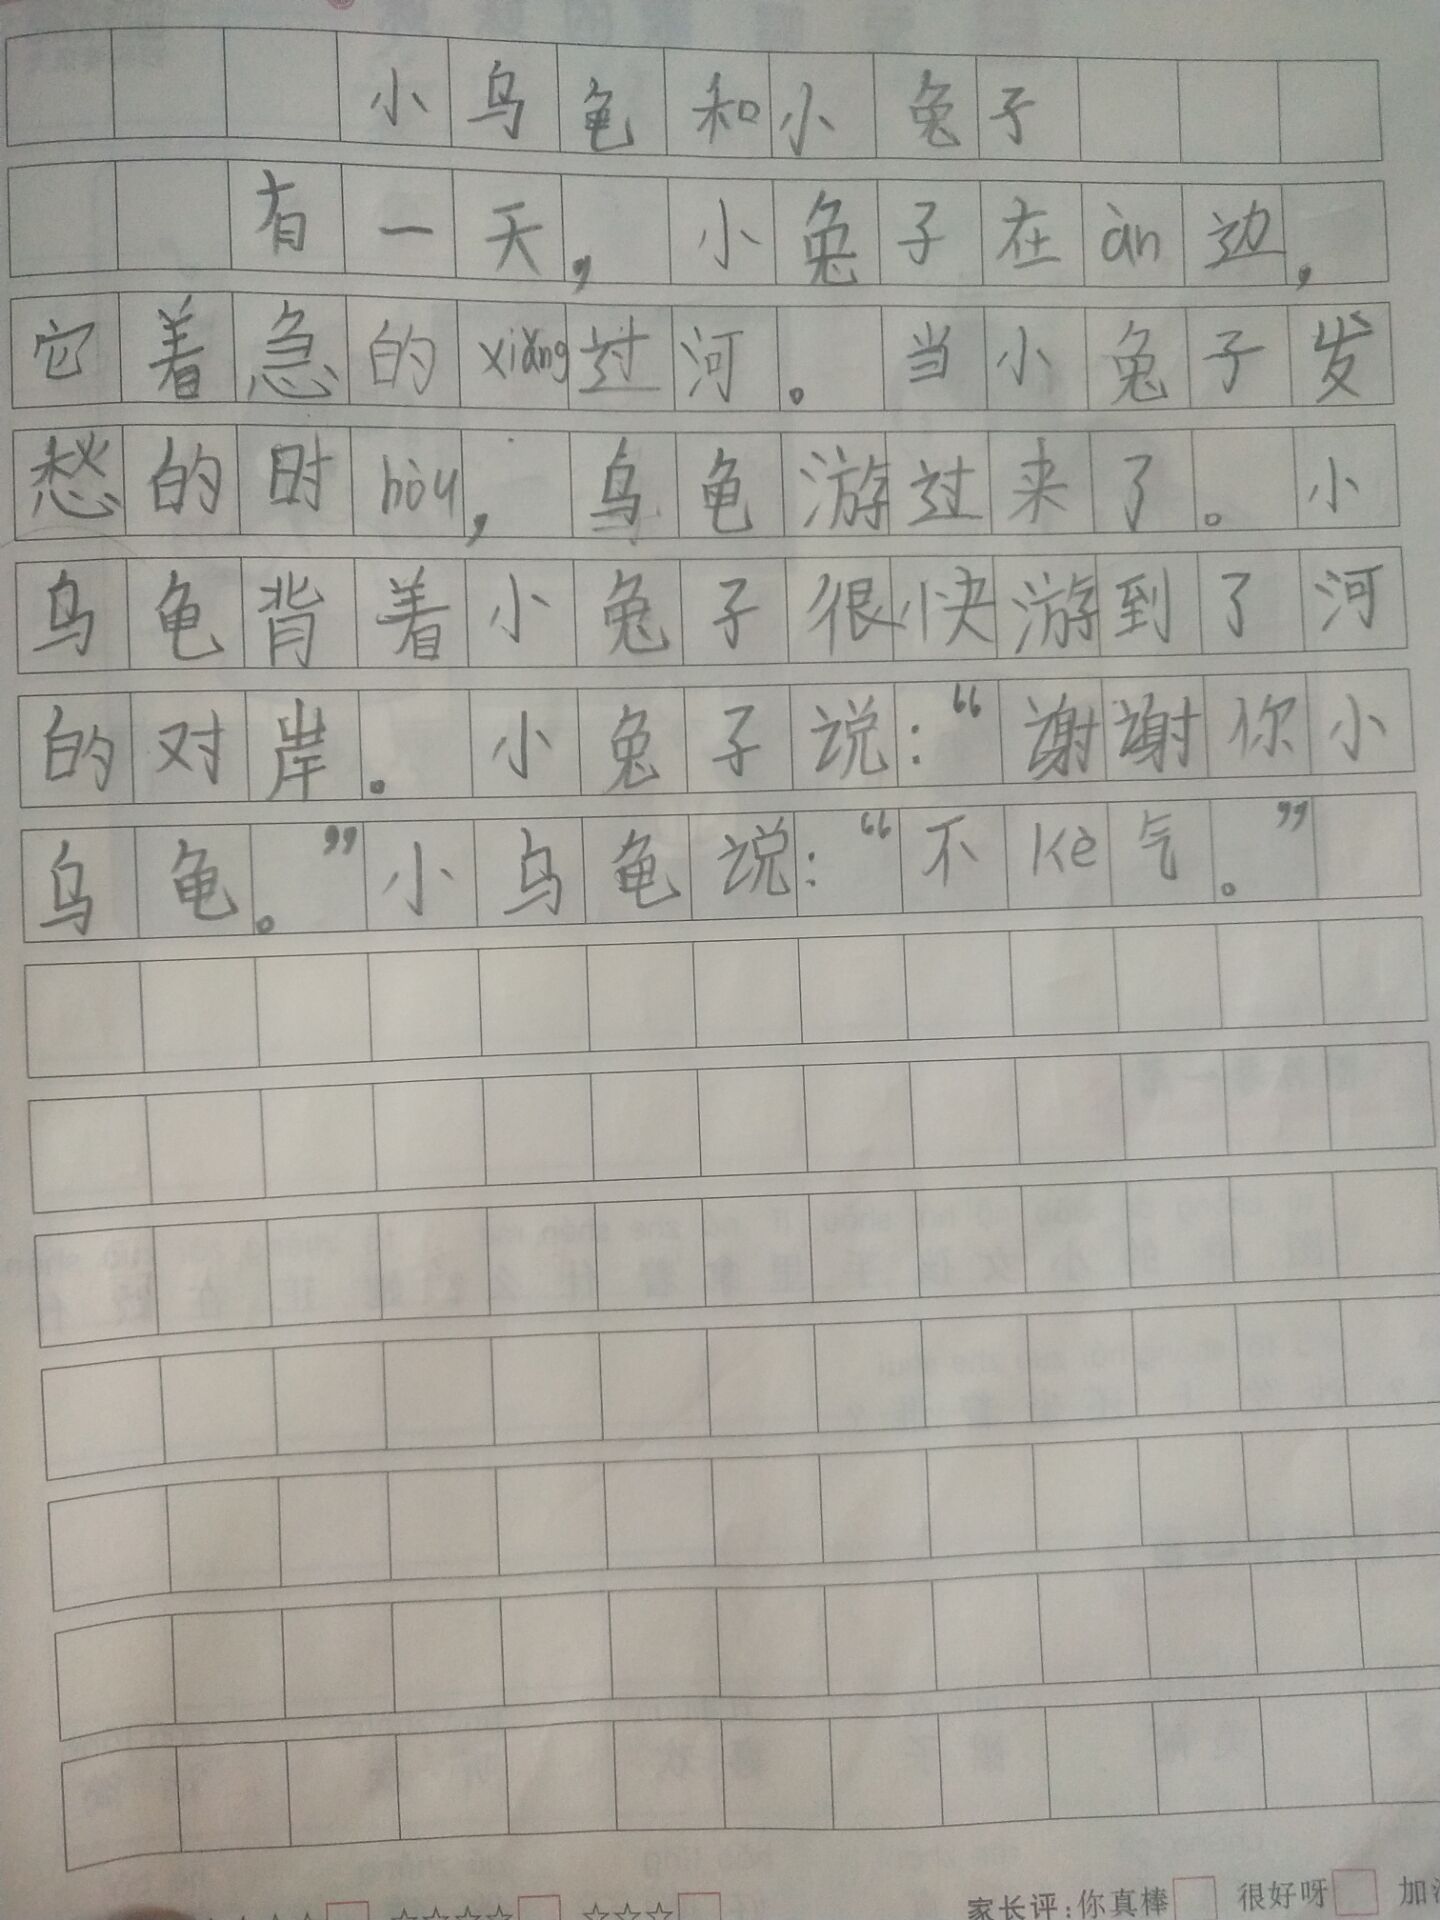 小乌龟和小兔子
有一天，小兔子在àn边，
它着急的xiǎng过河。当小兔子发
愁的时hòu，乌龟游过来了。小
乌龟背着小兔子很快游到了河
的对岸。小兔子说：“谢谢你小
乌龟。”小乌龟说：“不kè气。”
☆☆☆☆ ☆☆☆ 家长评:你真棒 很好呀